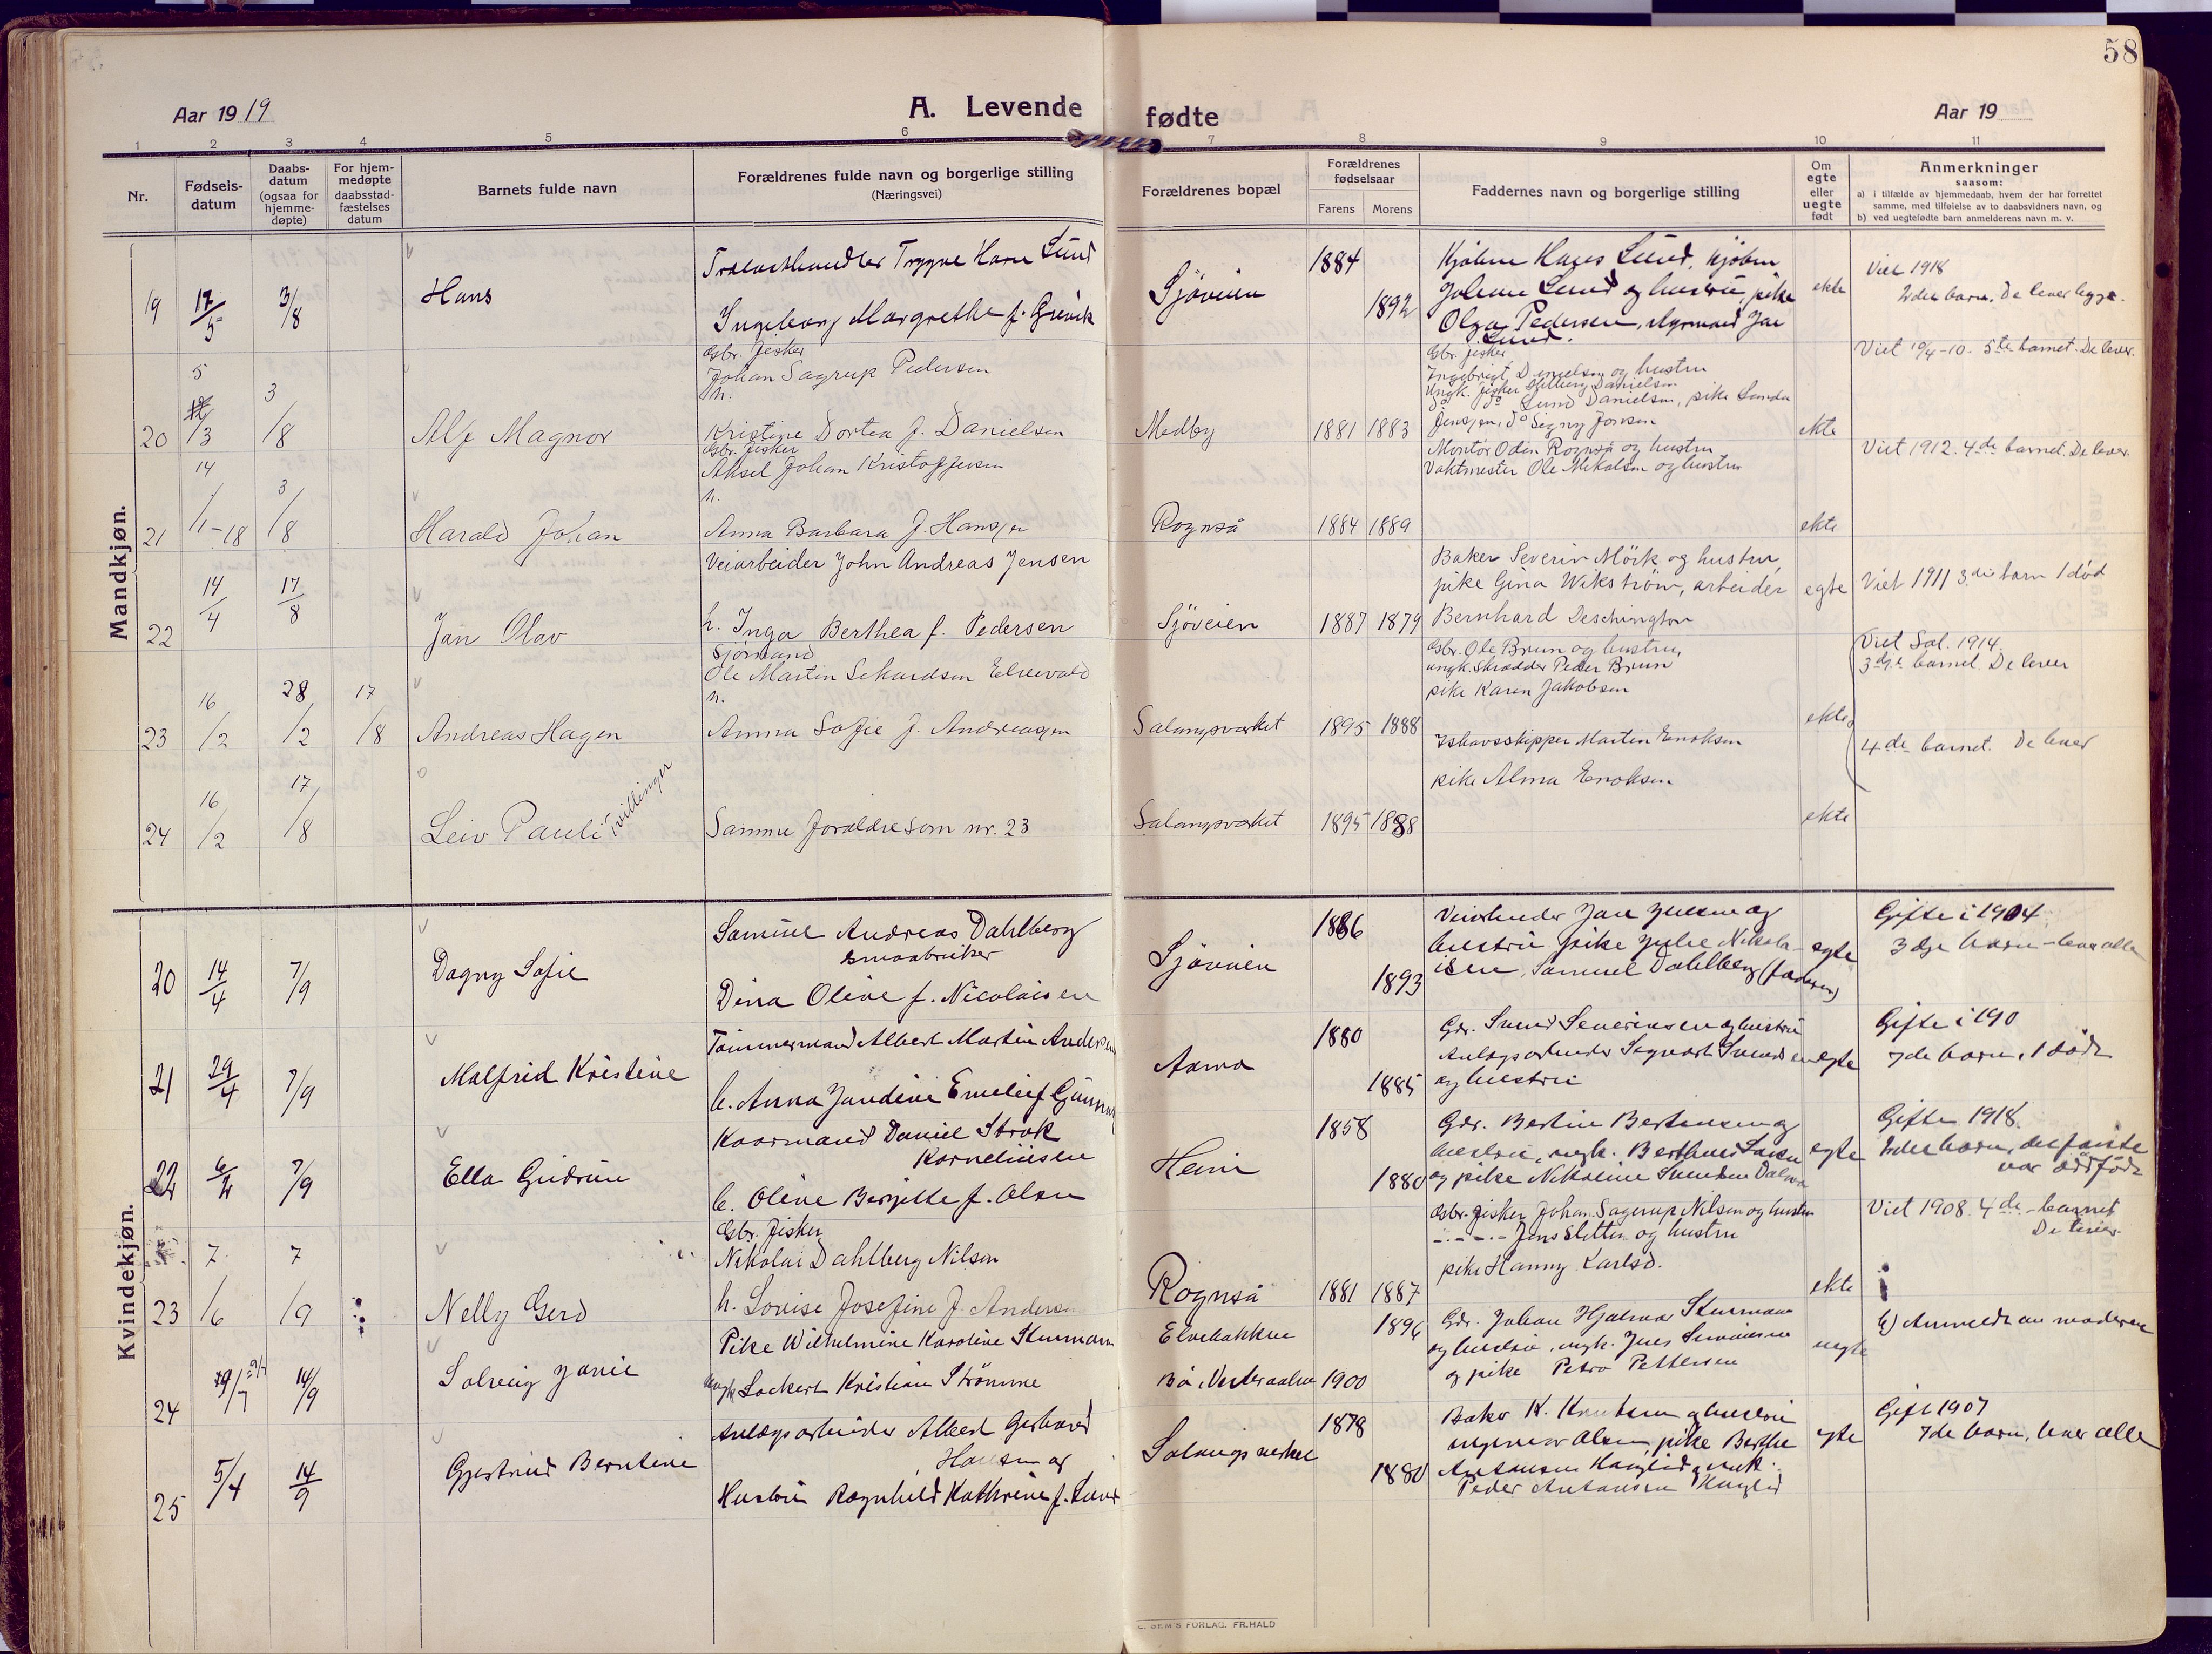 58
Aar 1919
A. Levende
fødte
Aar 19
1 2 3 4 5 6 7 8 9 10 11
Nr.
Fødsels-
datum
Daabs-
datum
(ogsaa for
hjemme-
døpte)
For hjem-
medøpte
daabsstad-
fæstelses
datum
Barnets fulde navn
Forældrenes fulde navn og borgerlige stilling
(Næringsvei)
Forældrenes bopæl
Forældrenes
fødselsaar
Farens Morens
Faddernes navn og borgerlige stilling
Om
egte
eller
uegte
født
Anmerkninger
saasom:
a) i tilfælde av hjemmedaab, hvem der har forrettet
samme, med tilføielse av to daabsvidners navn, og
b) ved uegtefødte barn anmelderens navn m. v.
Mandkjøn.
19 17/5 3/8
Hans
Trygve Lund
Ingeborg Margrethe f.
Sjøveien
1884
1892
Hans Lund,
Johan Lund og hustru, pike
Olga Pedersen,
Lund.
ekte
Viet 1918
2det barn. De lever begge.
20 5/3 3/8
Alf Magnor
Gbr. fisker
Johan Sagrup Pedersen
h.
Kristine Dortea f. Danielsen
Medby
1881 1883
Gbr. fisker
Ingebrigt Danielsen og hustru
Ungk. fisker Danielsen
do do Lund Danielsen, pike
Jensen, do Signy Jonsen
ekte
Viet 10/4-10. 5te barnet. De lever.
21 14/1-18 3/8
Harald Johan
Gbr. fisker
Aksel Johan Kristoffersen
h.
Anna Barbara f. Hansen
Rognså
1884 1889
Montør Odin Rognså og hustru
Vaktmester Ole Mikalsen og hustru
ekte
Viet 1912. 4de barnet. De lever.
22 14/4 17/8
Jan Olav
Veiarbeider John Andreas Jensen
h. Inga Berthea f. Pedersen
Sjøveien
1887 1879
Baker Severin Mörk og hustru,
pike Gina Wikström, arbeider
Bernhard Deschington
egte
Viet 1911 3die barn 1 død
23 16/2 28/2 17/8
Andreas Hagen
Sjømand
Ole Martin Elvevold
h.
Anna Sofie f. Andreassen
Salangsverket
1895 1888
Gbr. Ole Brun og hustru,
ungk. skrædder Peder Brun
pike Karen Jakobsen
ekte
Viet Sal. 1914.
3dje barnet. De lever
24 16/2 17/8
Leiv Pauli
Tvillinger
Samme foraldre som nr. 23
Salangsverket
1895 1888
Ishavsskipper Martin Enoksen
pike Alma Enoksen
ekte
4de barnet. De lever
Kvindekjøn.
20 14/4 7/9
Dagny Sofie
Samuel Andreas Dahlberg
smaabruker
Dina Oline f. Nicolaisen
Sjøveien
1886
1893
hustru pike Nikola-
isen, Samuel Dahlberg (faderen)
egte
Gifte i 1904
3dje barn - lever alle
21 29/4 7/9
Malfrid Kristine
Tømmermand Albert Martin
h. Anna Jandine
1880
1885
Gdr. Severinsen og hustru
Anlægsarbeider Sigvart Svendsen
og hustru
egte
Gifte i 190
7de barn, 1 død
22 7/9
Ella Gudrun
Daniel
Korneliusen
h. Oline Bergitte f. Olsen
1858
1880
Gdr. Bertin Bertensen og
hustru, ungk.
og pike Nikoline Svendsen
egte
Gifte 1918.
2det barn, det første
var dødfødt
23 7/6 7/9
Nelly Gerd
Gbr. fisker
Nikolai Dahlberg Nilsen
h. Lovise Josefine f.
Rognså
1881 1887
Gbr. fisker Johan Sagerup Nilsen og hustru
-.-.-.- Jens Sletten og hustru
pike Hanny Karlsd.
ekte
Viet 1908. 4de barnet
De lever
24 19/7 14/9
Solveig Janie
Pike Wilhelmine Karoline
Ungk. Lockert Kristian Strømme
Elvebakken
Bø i Vesteraalen
1896
1900
Gdr. Johan Hjalmar
og hustru, ungk. Jens
og pike Petra Pettersen
uegte
b) Anmeldt av moderen
25 5/4 14/9
Gjertrud Berntine
Anlægsarbeider Albert Gerhard
Hansen og
Hustru Ragnhild Kathrine f.
Salangsverket
1878
1880
Baker K. Knutsen og hustru
Olsen, pike Berthe
Antonsen
Peder Antonsen
egte
Gift 1907
7de barn, lever alle
FORLAG. FR. HALD